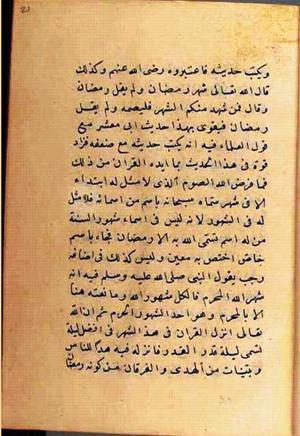 ويكتب حديثه فاعتبروه رضى الله عنهم وكذلك
قال الله تعالى شهر رمضان ولم يقل رمضان
وقال فمن شهد منكم الشهر فليصمه ولم يقل
رمضان فيقوى بهذا حديث ابى معشر مع
قول العلماء فيه انه يكتب حديثه مع ضعفه فزاد
قوة فى هذا الحديث بما ايده القران من ذلك
فما فرض الله الصوم الذى لا مثل له ابتداء
الا فى شهر سماه سبحانه باسم من اسمائه فلا مثل
له فى الشهور لانه ليس فى اسماء شهور السنة
من له اسم تسمى الله به الا رمضان فجاء باسم
خاص اختص به معين وليس كذلك فى اضافة
رجب يقول النبى صلى الله عليه وسلم فيه انه
شهر الله المحرم فالكل شهور الله وما نعته هنا
الا بالمحرم وهو احد الشهور الحرم ثم ان الله
تعالى انزل القران فى هذا الشهر فى افضل ليلة
تسمى ليلة القدر فانزله فيه هدى للناس
وبينات من الهدى والفرقان من كونه رمضان